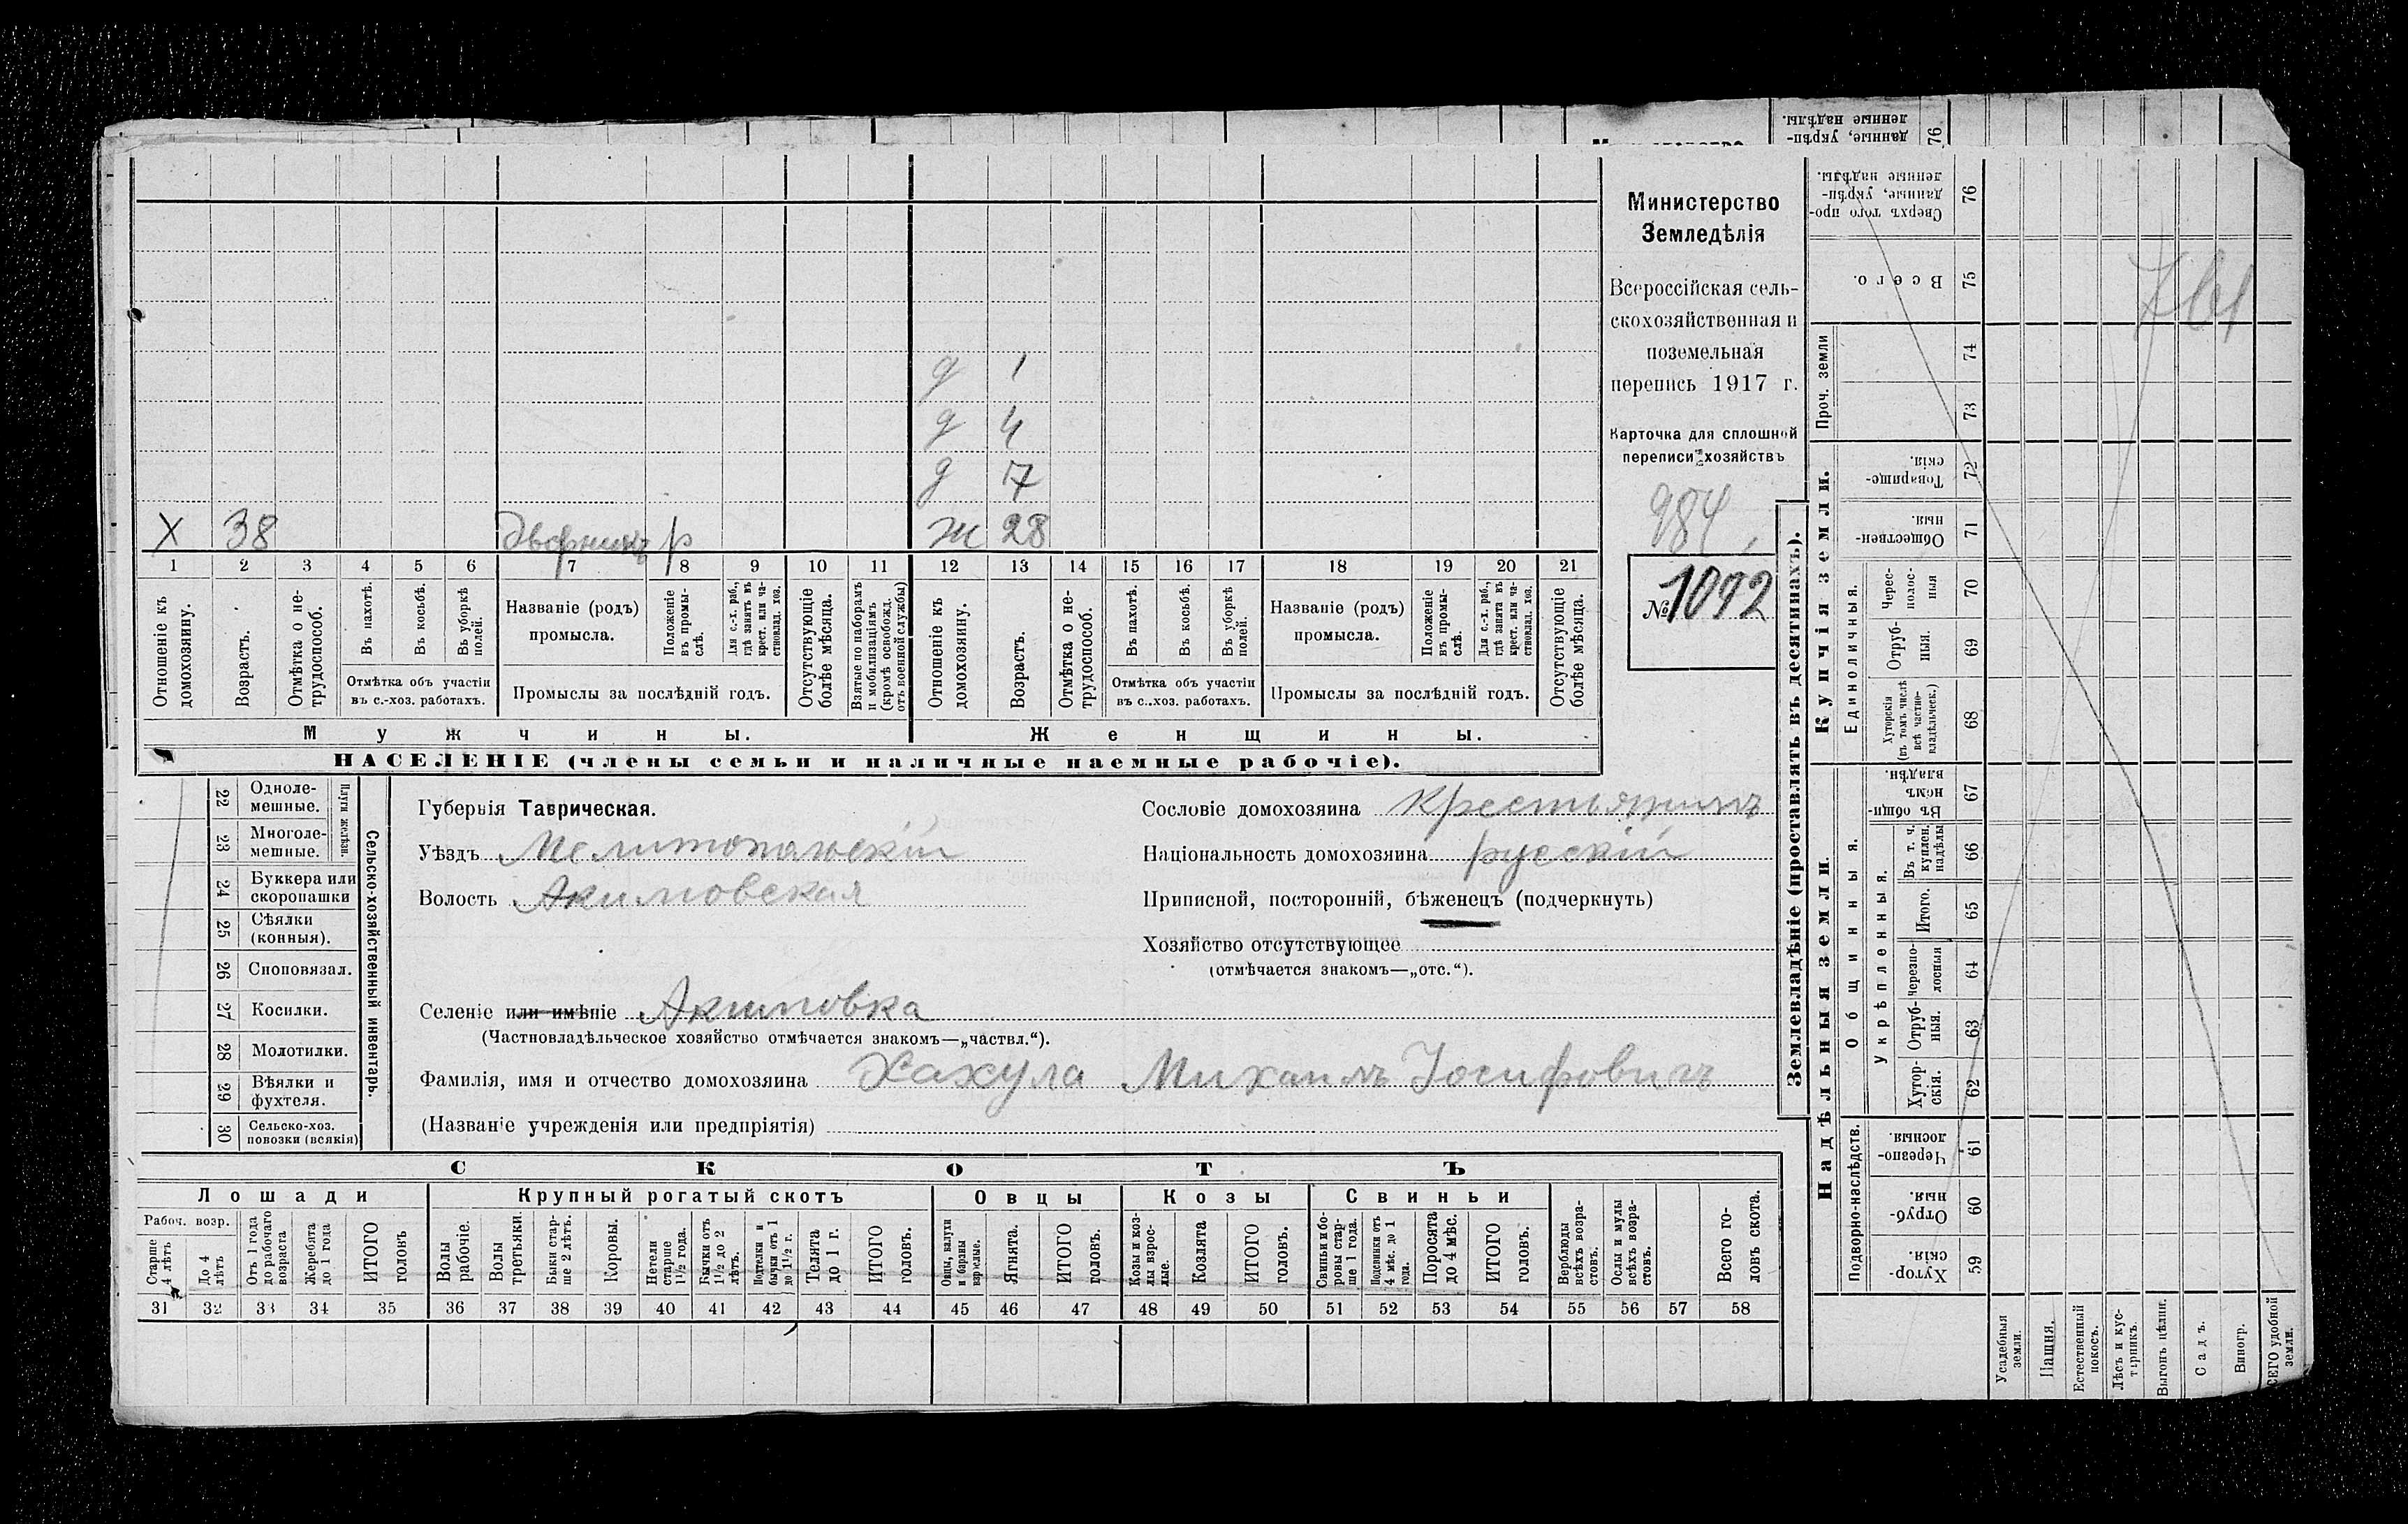 д 1
д 4
д 7
Х 38 Дворникъ р ж 28
1 2 3 4 5 6 7 8 9 10 11 12 13 14 15 16 17 18 19 20 21
Отношеніе къ домохозяину.
Возрастъ.
Отмѣтка о нетрудоспособ.
Въ пахотѣ.
Въ косьбѣ.
Въ уборкѣ полей.
Отмѣтка объ участіи
въ с.-хоз. работахъ.
Названіе (родъ)
промысла.
Положеніе въ промыслѣ.
Для с.-х. раб., гдѣ занятъ въ крест. или частновлад. хоз.
Промыслы за послѣдній годъ.
Отсутствующіе болѣе мѣсяца.
Взятые по наборамъ и мобилизаціямъ (кромѣ освобожд. отъ военной службы)
Отношеніе къ домохозяину.
Возрастъ.
Отмѣтка о нетрудоспособ.
Въ пахотѣ.
Въ косьбѣ.
Въ уборкѣ полей.
Отмѣтка объ участіи
въ с.-хоз. работахъ.
Названіе (родъ)
промысла.
Положеніе въ промыслѣ.
Для с.-х. раб., гдѣ занята въ крест. или частновлад. хоз.
Промыслы за послѣдній годъ.
Отсутствующіе болѣе мѣсяца.
Мужчины. Женщины.
НАСЕЛЕНІЕ (члены семьи и наличные наемные рабочіе).
Министерство
Земледѣлія
Всероссійская сель-
скохозяйственная и
поземельная
перепись 1917 г.
Карточка для сплошной
переписи хозяйствъ
984
№ 1092
22 Однолемешные.
23 Многолемешные.
Плуги желѣзн.
24 Буккера или скоропашки
25 Сѣялки (конныя).
26 Сноповязал.
27 Косилки.
28 Молотилки.
29 Вѣялки и фухтеля.
30 Сельско-хоз. повозки (всякія)
Сельско-хозяйственный инвентарь.
Губернія Таврическая.
Уѣздъ Мелитопольскій
Волость Акимовская
Селеніе или имѣніе Акимовка
(Частновладѣльческое хозяйство отмѣчается знакомъ—„частвл.“).
Фамилія, имя и отчество домохозяина Хахула Михаилъ Іосифовичъ
(Названіе учрежденія или предпріятія)
Сословіе домохозяина Крестьянинъ
Національность домохозяина русскій
Приписной, посторонній, бѣженецъ (подчеркнуть)
Хозяйство отсутствующее
(отмѣчается знакомъ—„отс.“).
СКОТЪ
Лошади Крупный рогатый скотъ Овцы Козы Свиньи
Рабоч. возр.
Старше 4 лѣтъ
До 4 лѣтъ
Отъ 1 года до рабочаго возраста
Жеребята до 1 года
ИТОГО головъ
Волы рабочіе.
Волы третьяки.
Быки старше 2 лѣтъ.
Коровы.
Нетели старше 1 1/2 года.
Бычки отъ 1 1/2 до 2 лѣтъ.
Подтелки и бычки отъ 1 до 1 1/2 г.
Телята до 1 г.
ИТОГО головъ.
Овцы, валухи и бараны взрослые.
Ягнята.
ИТОГО головъ.
Козы и козлы взрослые.
Козлята
ИТОГО головъ.
Свиньи и боровы старше 1 года.
Подсвинки отъ 4 мѣс. до 1 года.
Поросята до 4 мѣс.
ИТОГО головъ.
Верблюды всѣхъ возрастовъ.
Ослы и мулы всѣхъ возрастовъ.
Всего головъ скота.
31 32 33 34 35 36 37 38 39 40 41 42 43 44 45 46 47 48 49 50 51 52 53 54 55 56 57 58
Землевладѣніе (проставлять въ десятинахъ).
Купчія земли.
Надѣльныя земли
данные, укрѣп-
ленные надѣлы.
76
Сверхъ того проданные, укрѣпленные надѣлы.
76
Всего.
75
Проч. земли
74
73
Товарищескія.
72
Общественныя.
71
Единоличныя.
Чересполосныя
70
Отрубныя.
69
Хуторскія (въ томъ числѣ всѣ частновладѣльческ.)
68
Общинныя.
Въ общинномъ владѣн.
67
Укрѣпленныя.
Въ т. ч. куплен. надѣлы
66
Итого.
65
Черезполосныя
64
Отрубныя.
63
Хуторскія.
62
Подворно-наслѣдств.
Черезполосныя.
61
Отрубныя.
60
Хуторскія.
59
Усадебныя земли.
Пашня.
Естественный покосъ.
Лѣсъ и кустарникъ.
Выгонъ цѣлин.
Садъ.
Виногр.
ВСЕГО удобной земли.